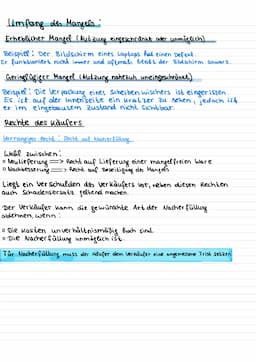 Umfang des Mangels:
Erheblicher Mangel (Nutzung eingeschränkt oder unmöglich)
Beispiel: Der Bildschirm eines Laptops hat einen Defekt.
Er funktioniert nicht immer und oftmals bleibt der Bildschirm schwarz.
Geringfügiger Mangel (Nutzung nahezu uneingeschränkt)
Beispiel: Die Verpackung eines Scheibenwischers ist eingerissen.
Es ist auf der Innenseite ein Kratzer zu sehen, jedoch ist
er im eingebauten Zustand nicht sichtbar.
Rechte des Käufers
Vorrangiges Recht: Recht auf Nacherfüllung
Wahl zwischen:
Neulieferung => Recht auf Lieferung einer mangelfreien Ware
Nachbesserung => Recht auf Beseitigung des Mangels
Liegt ein Verschulden des Verkäufers vor, neben diesen Rechten
auch Schadensersatz geltend machen.
Der Verkäufer kann die gewünschte Art der Nacherfüllung
ablehnen, wenn:
Die Kosten unverhältnismäßig hoch sind.
Die Nacherfüllung unmöglich ist.
Für Nacherfüllung muss der Käufer dem Verkäufer eine angemessene Frist setzen